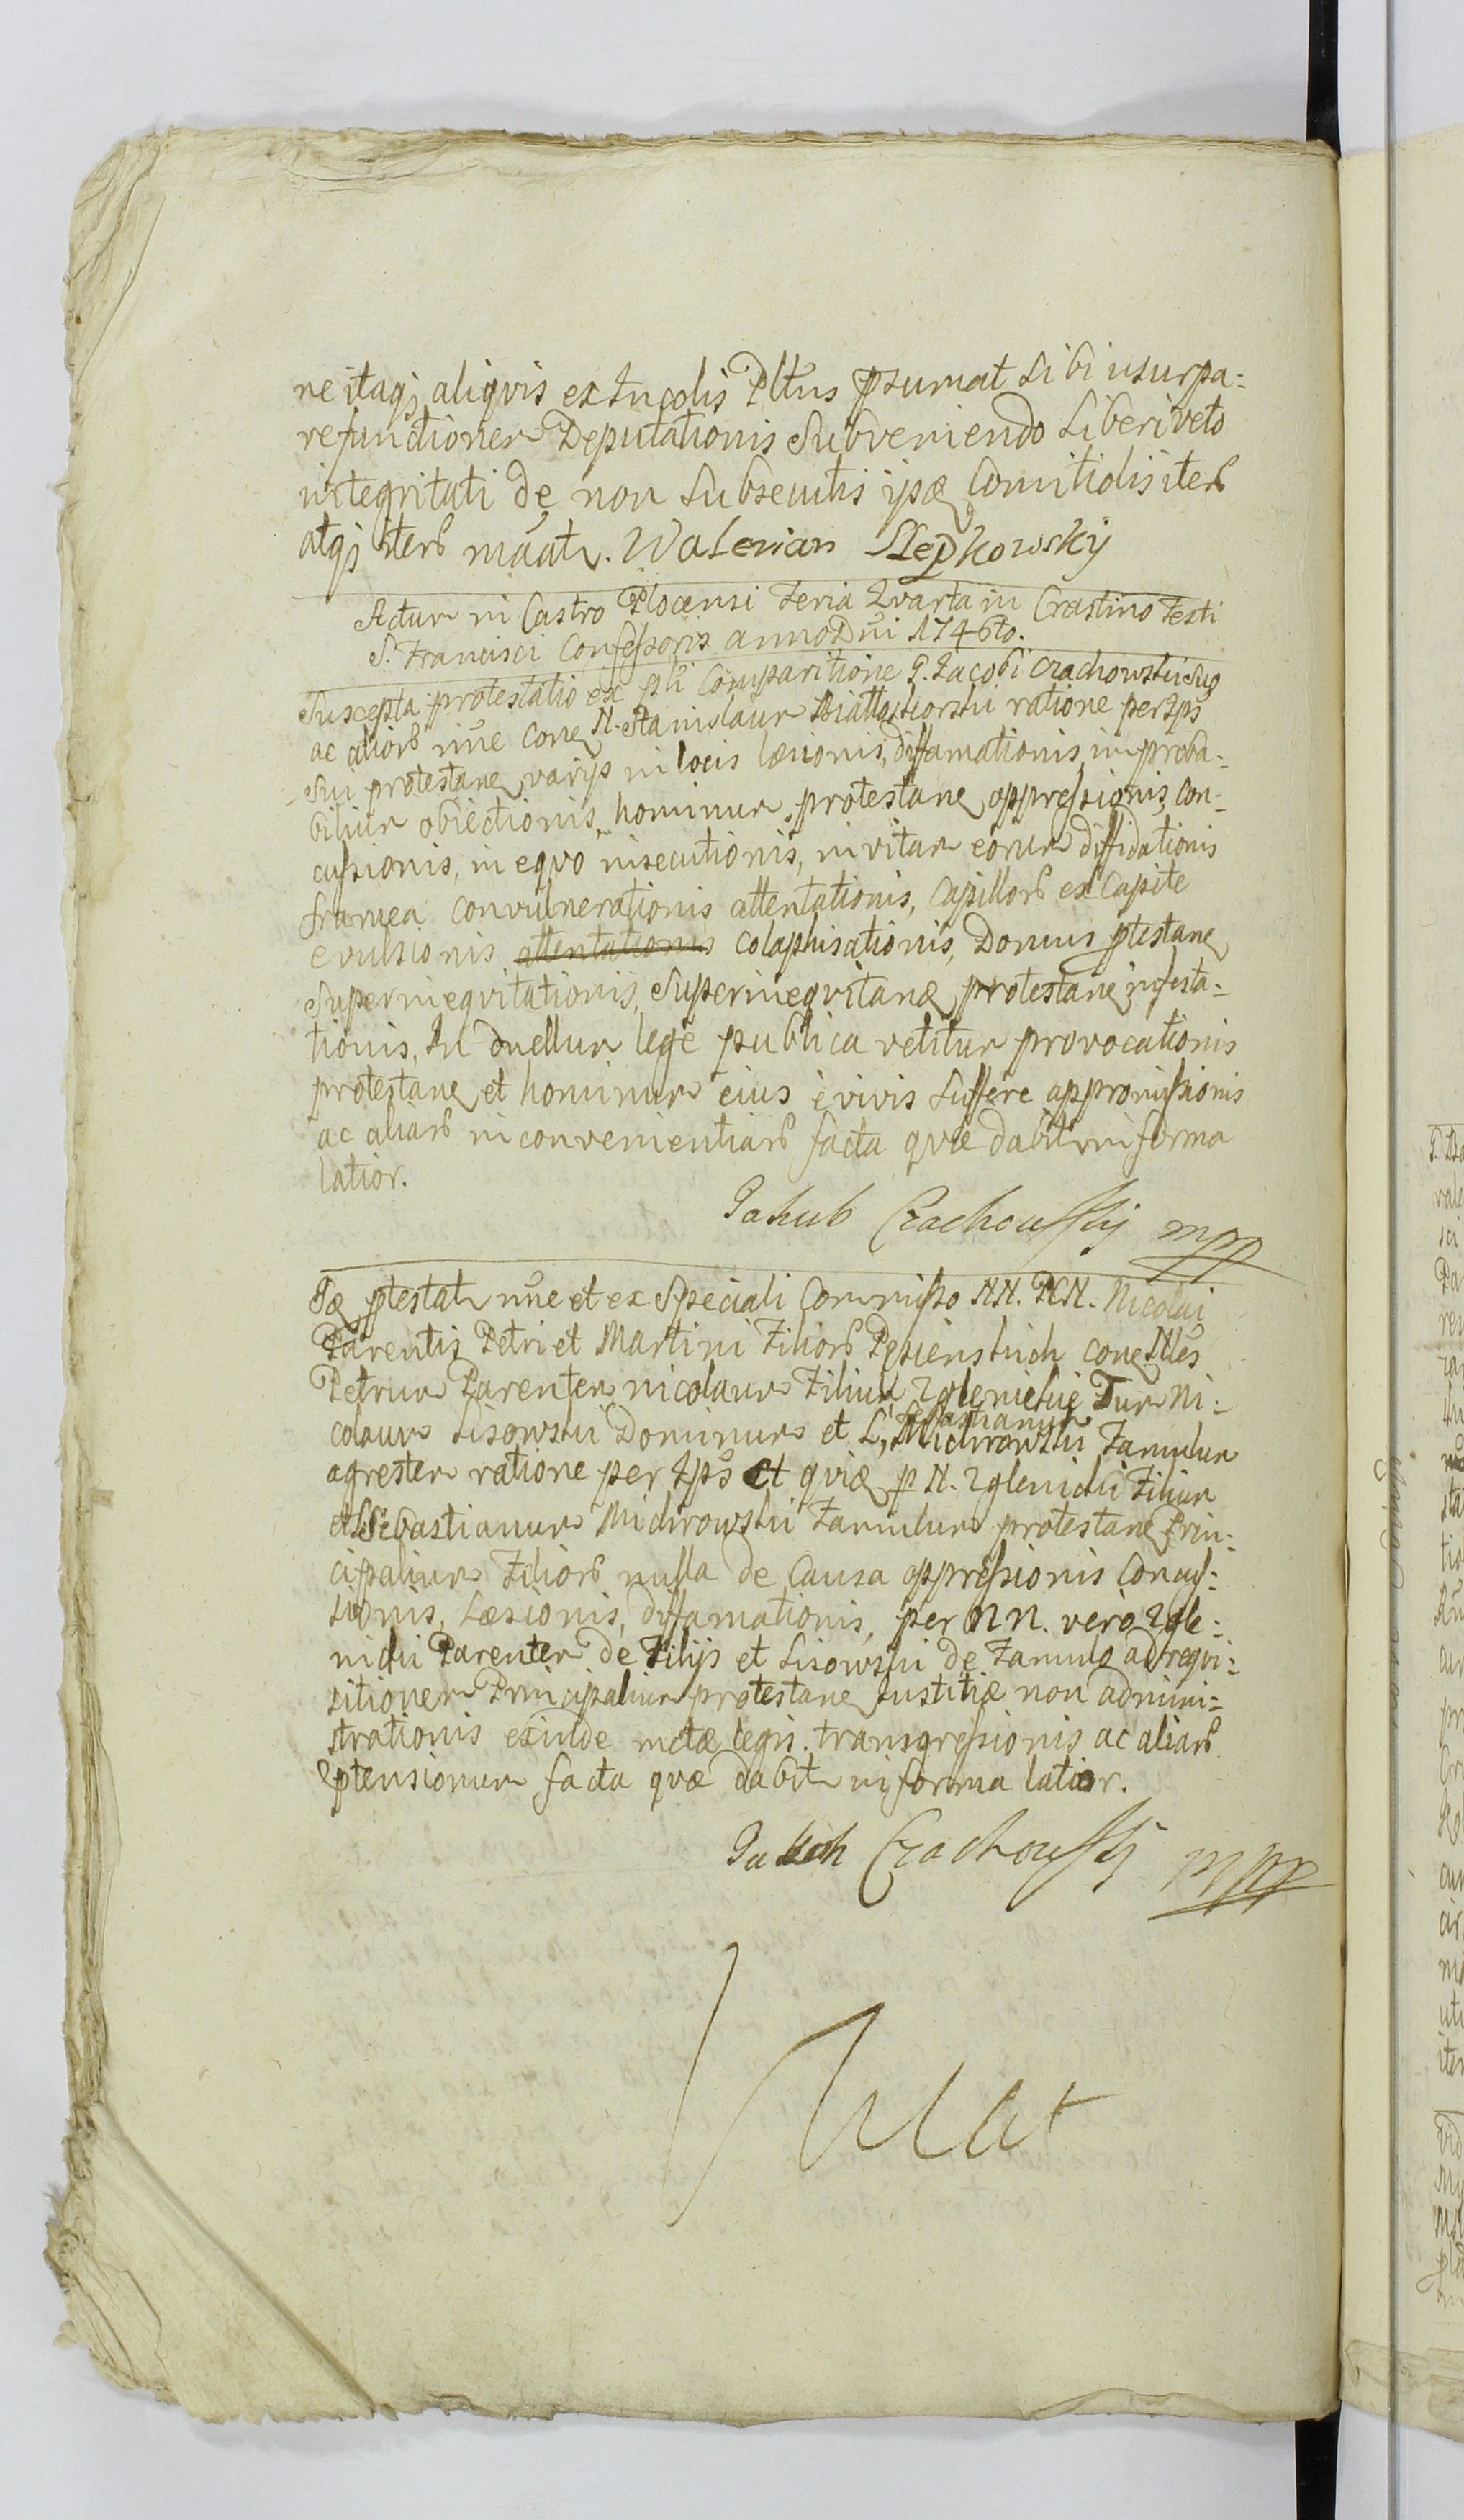 ne itaqꝫ aliqvis ex Incolis Pltus psumat sibi usurpa:
re functionem Deputationis subveniendo Liberi veto
integritati de non subsecutis ipæ Comitiolis iterū
atqꝫ iterū māatr. Walerian Slepkowsky
Actum in Castro Plocensi Feria Qvarta in Crastino Festi
S. Francisci Confessoris anno Dni 1746to.
Suscepta protestatio ex pli Comparitione G. Jacobi Czachowski suo
ac aliorū nne cone N. Stanislaum ratione per Ips
sui protestane varijs in locis læsionis, diffamationis, improba:
bilium obiectionis, hominum protestane oppressionis, con:
cussionis, in eqvo insecutionis, in vitam eorum diffidationis
framea convulnerationis attentationis, Capillorū ex Capite
evulsionis attentationis colaphisationis, Domus ptestane
superineqvitationis, superineqvitanæ protestane infesta:
tionis, In duellum lege publica vetitum provocationis
protestane et hominum eius è vivis sufferre appromissionis
ac aliarū inconvenientiarū facta qvæ dabit in forma
latior.
Jakub Czachowsky mpp
Iæ ptestatr nne et ex speciali Commisso NN. Nicolai
Parentis Petri et Martini Filiorū cone Nles
Petrum Parentem Nicolaum Filium Zglenickie Tum Ni:
colaum Lisowski Dominum et L, Sebastianum Michrowski Famulum
agrestem ratione per Ips et qviæ p N. Zglenicki Filium
et Sebastianum Michrowski Famulum protestane Prin:
cipalium Filiorū nulla de Causa oppressionis Concus:
sionis, Læsionis, diffamationis, per NN. verò Zgle:
nicki Parentem de Filijs et Lisowski de Famulo ad reqvi:
sitionem Principalium protestane Justitiæ non admini:
strationis exinde metæ legis transgressionis ac aliarū
ptensionum facta qvæ dabitr in forma latior.
Jakub Czachowsky mpp